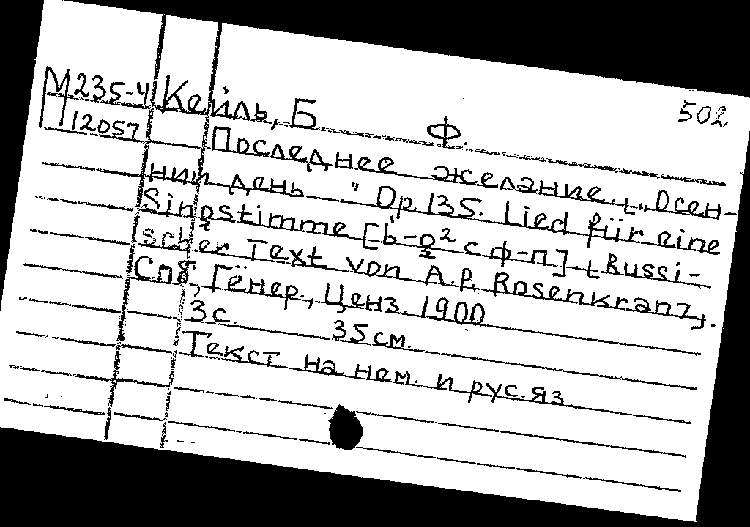 502
М235-4 Кейль, Б Ф.
12057 Последнее желание. [„Осен-
ний день " Op. 135. Lied für eine
Singstimme [b-g² с ф-п] [Russi-
scher Text von A.P. Rosenkranz].
Спб, Гёнер., Ценз. 1900
3с. 35см.
Текст на нем. и рус.яз